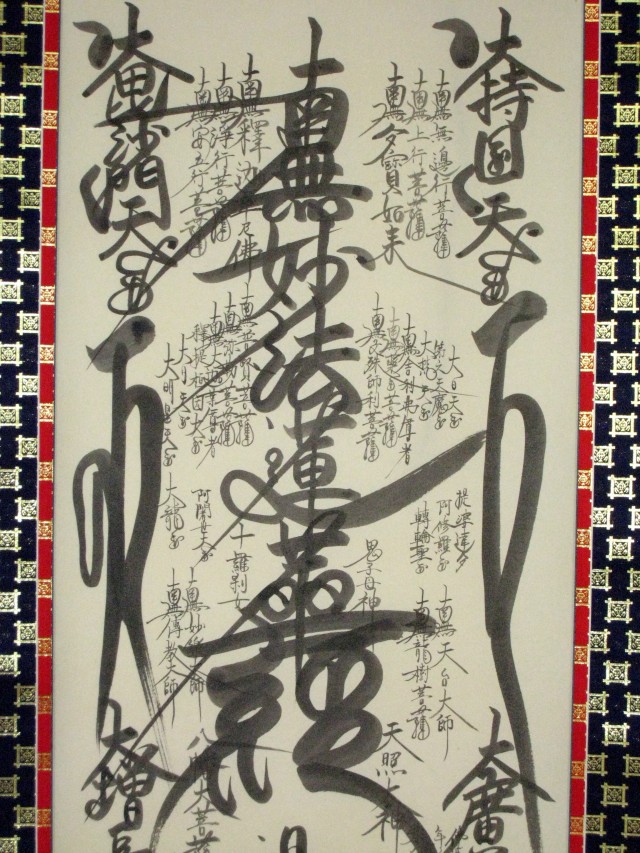 大持国天王
南無無邊行菩薩
南無上行菩薩
南無多寶如来
南無妙法蓮華經
南無釋迦牟尼佛
南無浄行菩薩
南無安立行菩薩
大毘沙門天王
大日天王
第六天魔王
大梵天王
南無舎利弗尊者
南無薬王菩薩
南無文殊師利菩薩
南無普賢菩薩
南無弥勒菩薩
南無大迦葉尊者
釋提桓因大王
大月天王
大明星天王
提婆達多
阿修羅王
轉輪聖王
鬼子母神
十羅刹女
阿闍世大王
大龍王
南無天台大師
南無龍樹菩薩
天照大神
八幡大菩薩
南無妙楽大師
南無傳教大師
大廣
日
大増長